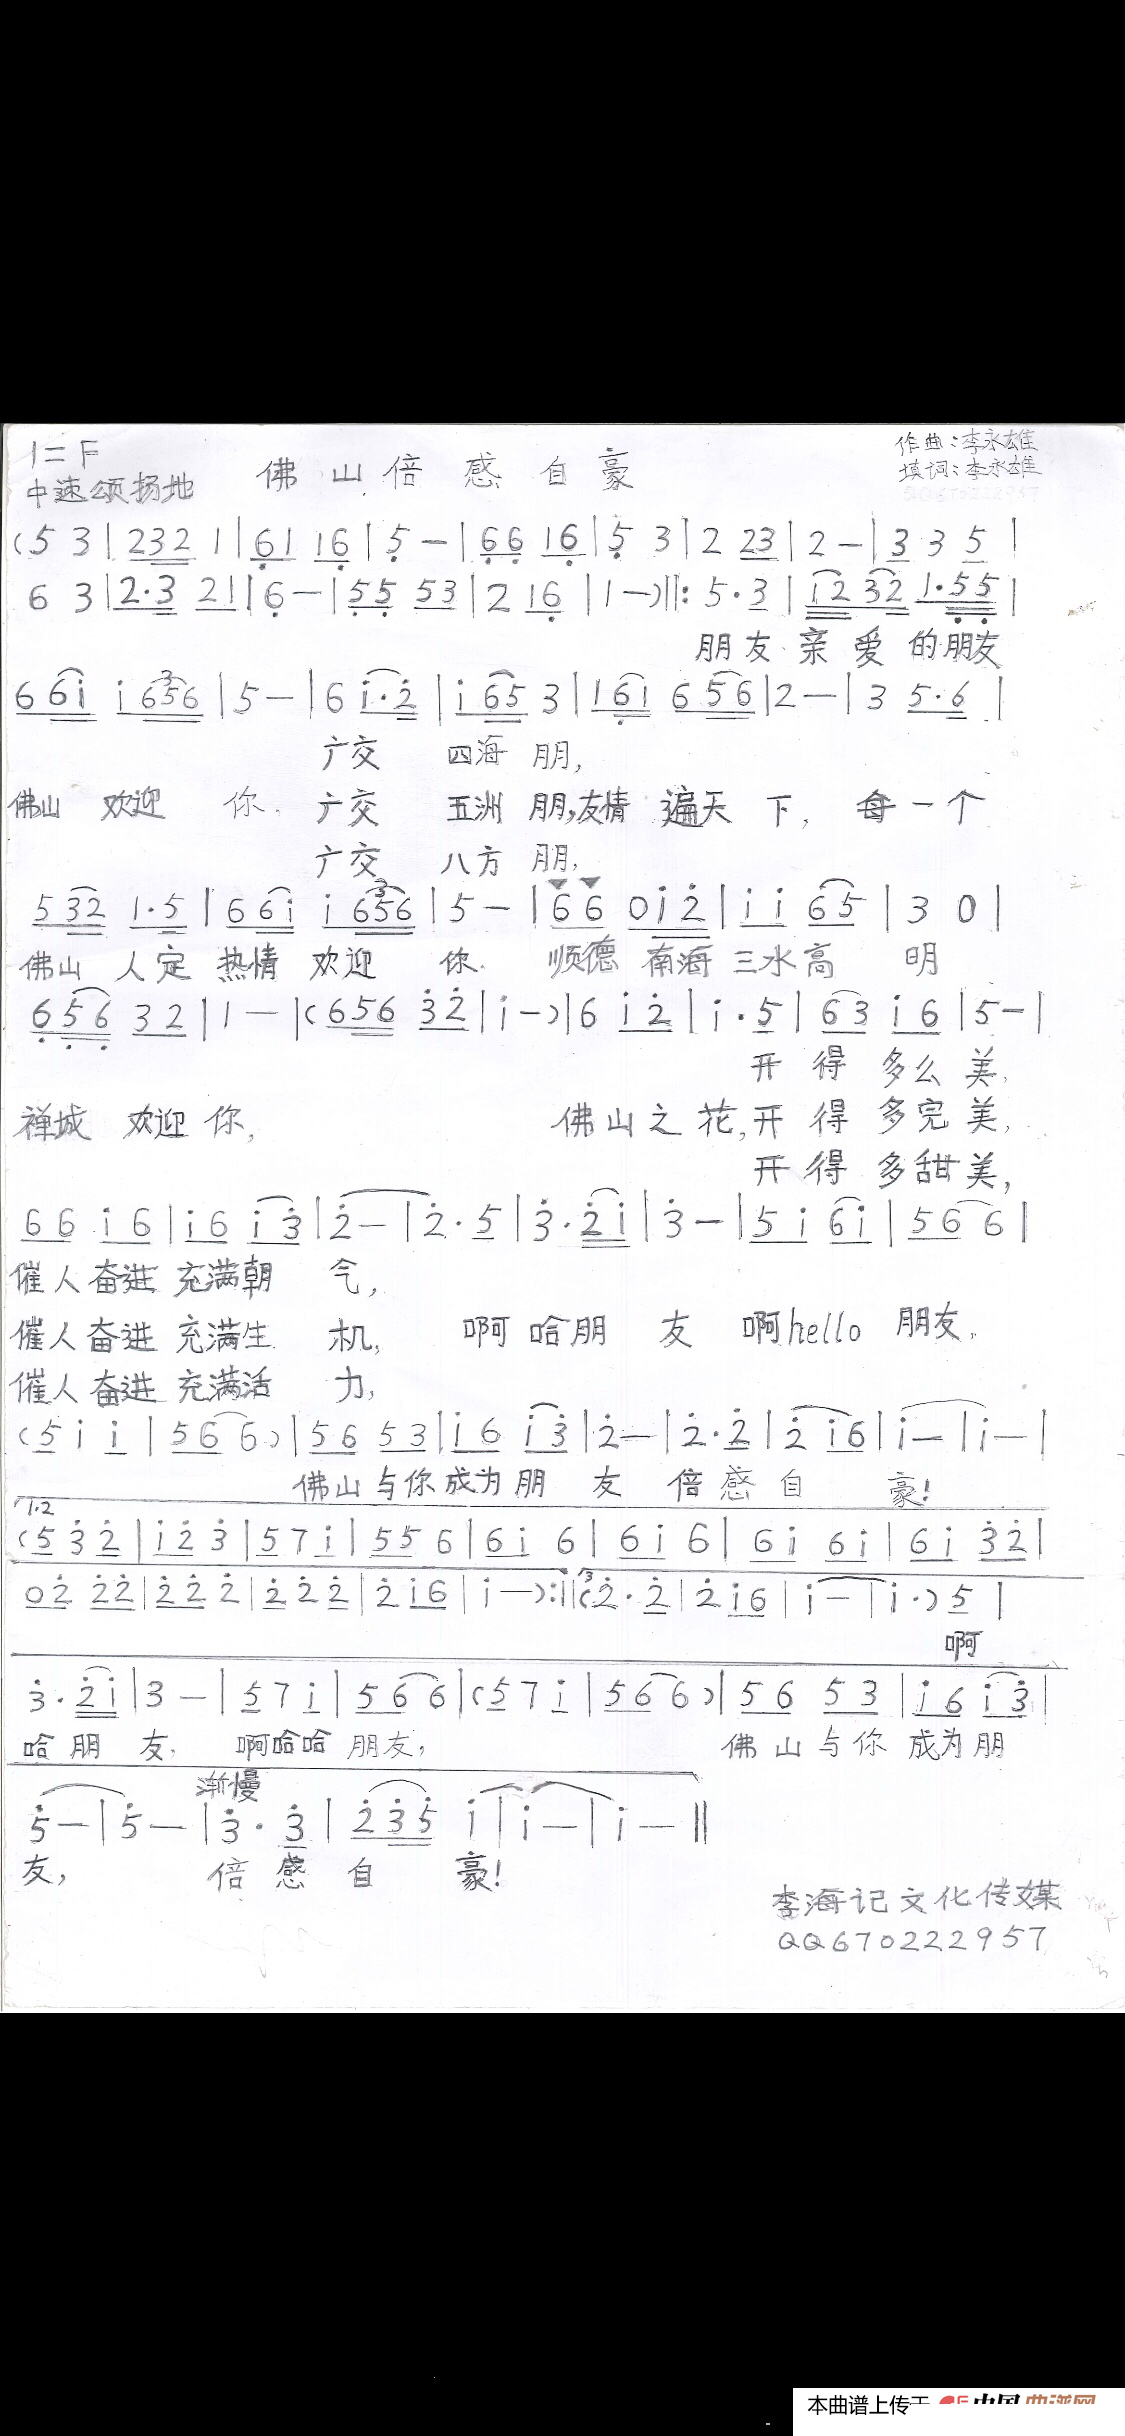 1=F
佛山倍感自豪
作曲:李永雄
填词:李永雄
中速颂扬地
QQ670222957
(5 3|232 1|6̣1 16̣|5̣ —|6̣6̣ 16̣|5̣ 3|2 23|2 —|3 3 5|
6 3|2·3 21|6̣ —|5̣5̣ 53|2 16̣|1 —)‖:5·3|i2 32 1·5̣5̣|
朋友 亲爱的朋友
6 6i i 656|5 —|6 i·2̇|i 65 3|1 6̣1 6 56|2 —|3 5·6|
3
广交 四海 朋,
佛山 欢迎 你. 广交 五洲 朋,友情 遍天下, 每一个
广交 八方 朋,
5 32 1·5|6 6i i 656|5 —|6 6 0i2̇|i i 65|3 0|
3
佛山 人定 热情 欢迎 你. 顺德 南海 三水高 明
6̣5̣6̣ 32|1 —|(656 3̇2̇|i —)|6 i2̇|i·5|63 i6|5 —|
开得 多么美,
禅城 欢迎 你, 佛山之花,开得 多完美,
开得 多甜美,
66 i6|i6 i3̇|2̇ —|2̇·5|3̇·2̇i|3̇ —|5i 6i|56 6|
催人奋进 充满朝 气,
催人奋进 充满生 机, 啊哈朋 友 啊hello 朋友,
催人奋进 充满活 力,
(5 i i|56 6)|56 53|i6 i3̇|2̇ —|2̇·2̇|2̇ i6|i —|i —|
佛山与你成为朋 友 倍感自 豪!
1.2
(5 3̇ 2̇|i2̇ 3̇|57 i|55 6|6i 6|6i 6|6i 6i|6i 3̇2̇|
02̇ 2̇2̇|2̇2̇ 2̇|2̇ 2̇ 2̇|2̇ i6|i —):‖(2̇·2̇|2̇ i6|i —|i·)5|
3
啊
3̇·2̇i|3 —|5 7 i|56 6|(5 7 i|56 6)|56 53|i6 i3̇|
哈朋 友, 啊哈哈 朋友, 佛山与你 成为朋
渐慢
5̇ —|5̇ —|3̇·3̇|2̇3̇5̇ i|i —|i —‖
友, 倍感自 豪!
李海记文化传媒
QQ670222957
本曲谱上传于 中国曲谱网